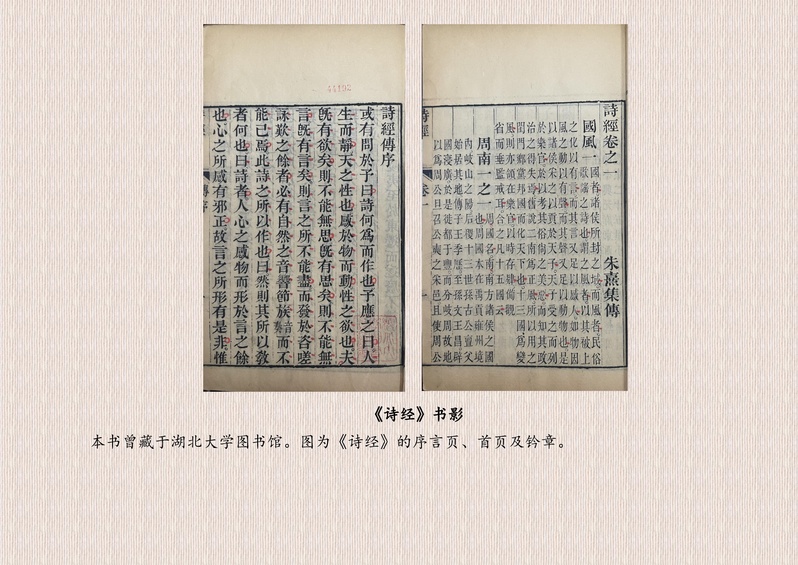 44192
詩經傳序
或有問於予曰詩何爲而作也予應之曰人
生而靜天之性也感於物而動性之欲也夫
既有欲矣則不能無思既有思矣則不能無
言既有言矣則言之所不能盡而發於咨嗟
詠歎之餘者必有自然之音響節族音奏而不
能已焉此詩之所以作也曰然則其所以敎
者何也曰詩者人心之感物而形於言之餘
也心之所感有邪正故言之所形有是非惟
詩經 傳序
詩經卷之一 朱熹集傳
國風一 國者諸侯所封之域而風者民俗
歌謠之詩也謂之風者以其被上
之化以有言而其言又足以感人如物因
風之動以有聲而其聲又足以動物也是
以諸侯采之以貢於天子天子受之而列
於樂官於以考其俗尚之美惡而知其政
治之得失焉舊說二南爲正風所以用之
閨門鄉黨邦國而化天下也十三國爲變
風則亦領在樂官以時存肄備觀
省而垂監戒耳合之凡十五國云
周南一之一 周國名南南方諸侯之國
也周國本在禹貢雍州境
內岐山之陽后稷十三世孫古公亶父
始居其地傳子王季歷至孫文王昌辟
國寖廣於是徙都于豐而分岐周故地
以爲周公旦召公奭之采邑且使周公
詩經 卷一
《诗经》书影
本书曾藏于湖北大学图书馆。图为《诗经》的序言页、首页及钤章。